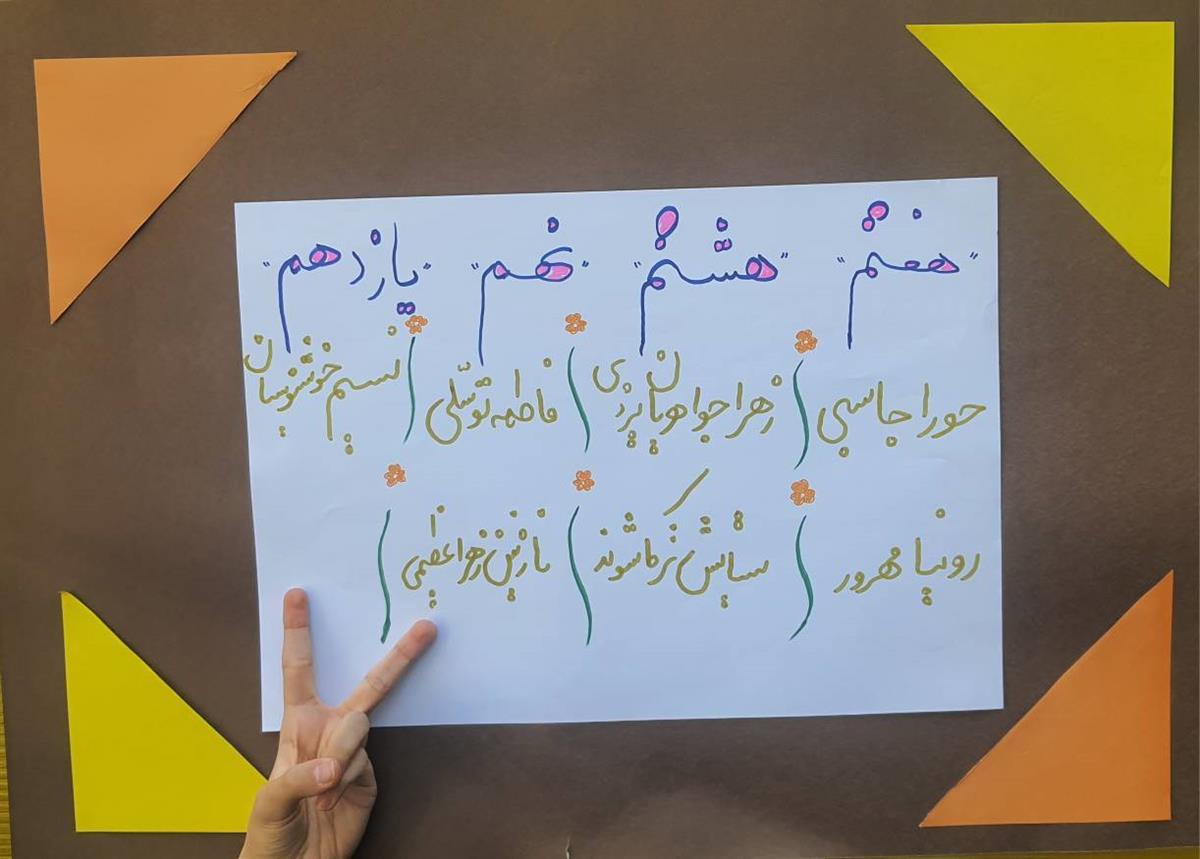 "هفتم" "هشتم" "نهم" "یازدهم"
حورا جاسبی زهرا جواهریان یزدی فاطمه توسّلی نسیم خوشنویسان
رونیا مهرور ستایش نرماشوند نازنین زهرا عظیمی